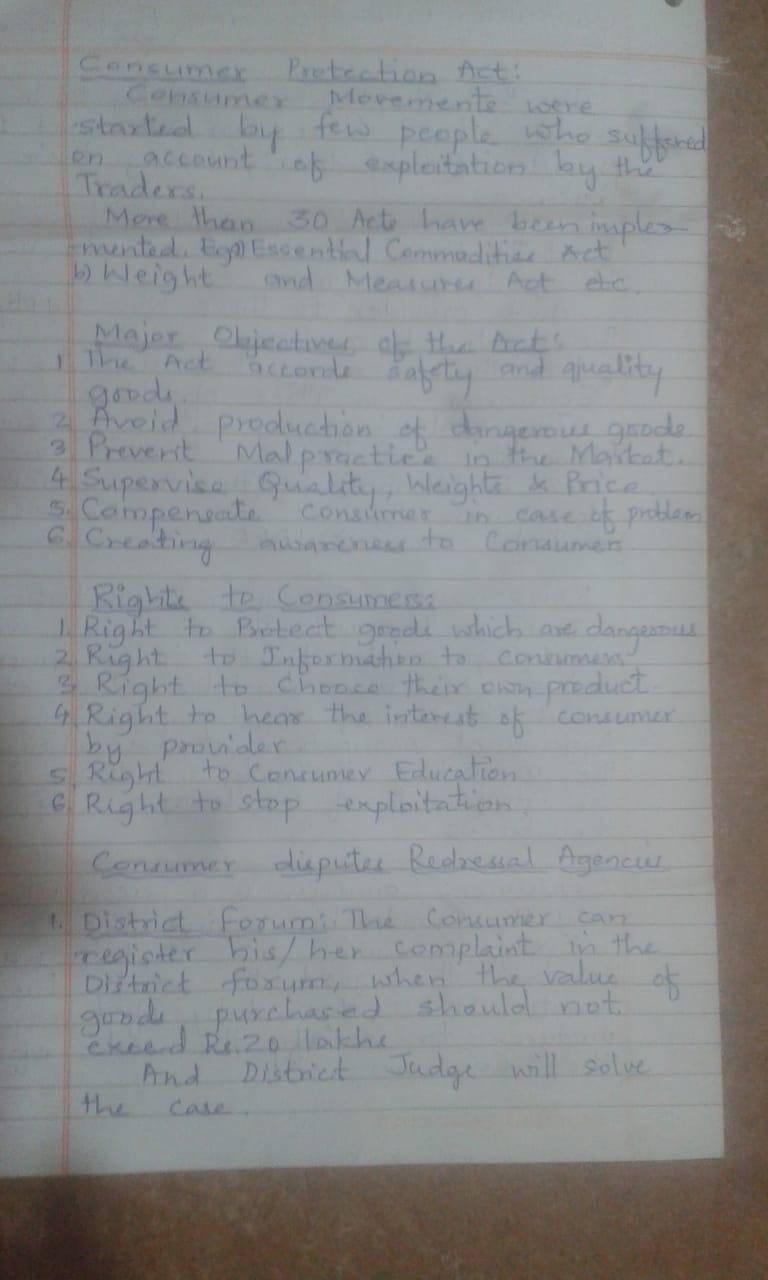 Consumer Protection Act:
Consumer Movements were
started by few people who suffered
on account of exploitation by the
Traders.
More than 30 Acts have been imple-
mented. Eg a) Essential Commodities Act
b) Weight and Measures Act etc.
Major Objectives of the Act:
1 The Act accords safety and quality
goods.
2 Avoid production of dangerous goods.
3 Prevent Malpractice in the Market.
4 Supervise Quality, Weights & Price
5. Compensate consumer in case of problem
6. Creating awareness to Consumers
Rights to Consumers:
1. Right to Protect goods which are dangerous
2. Right to Information to consumers
3. Right to Choose their own product.
4. Right to hear the interest of consumer
by provider
5. Right to Consumer Education
6. Right to stop exploitation
Consumer disputes Redressal Agencies
1. District Forum: The Consumer can
register his/her complaint in the
District forum, when the value of
goods purchased should not
exceed Rs.20 lakhs
And District Judge will solve
the case.